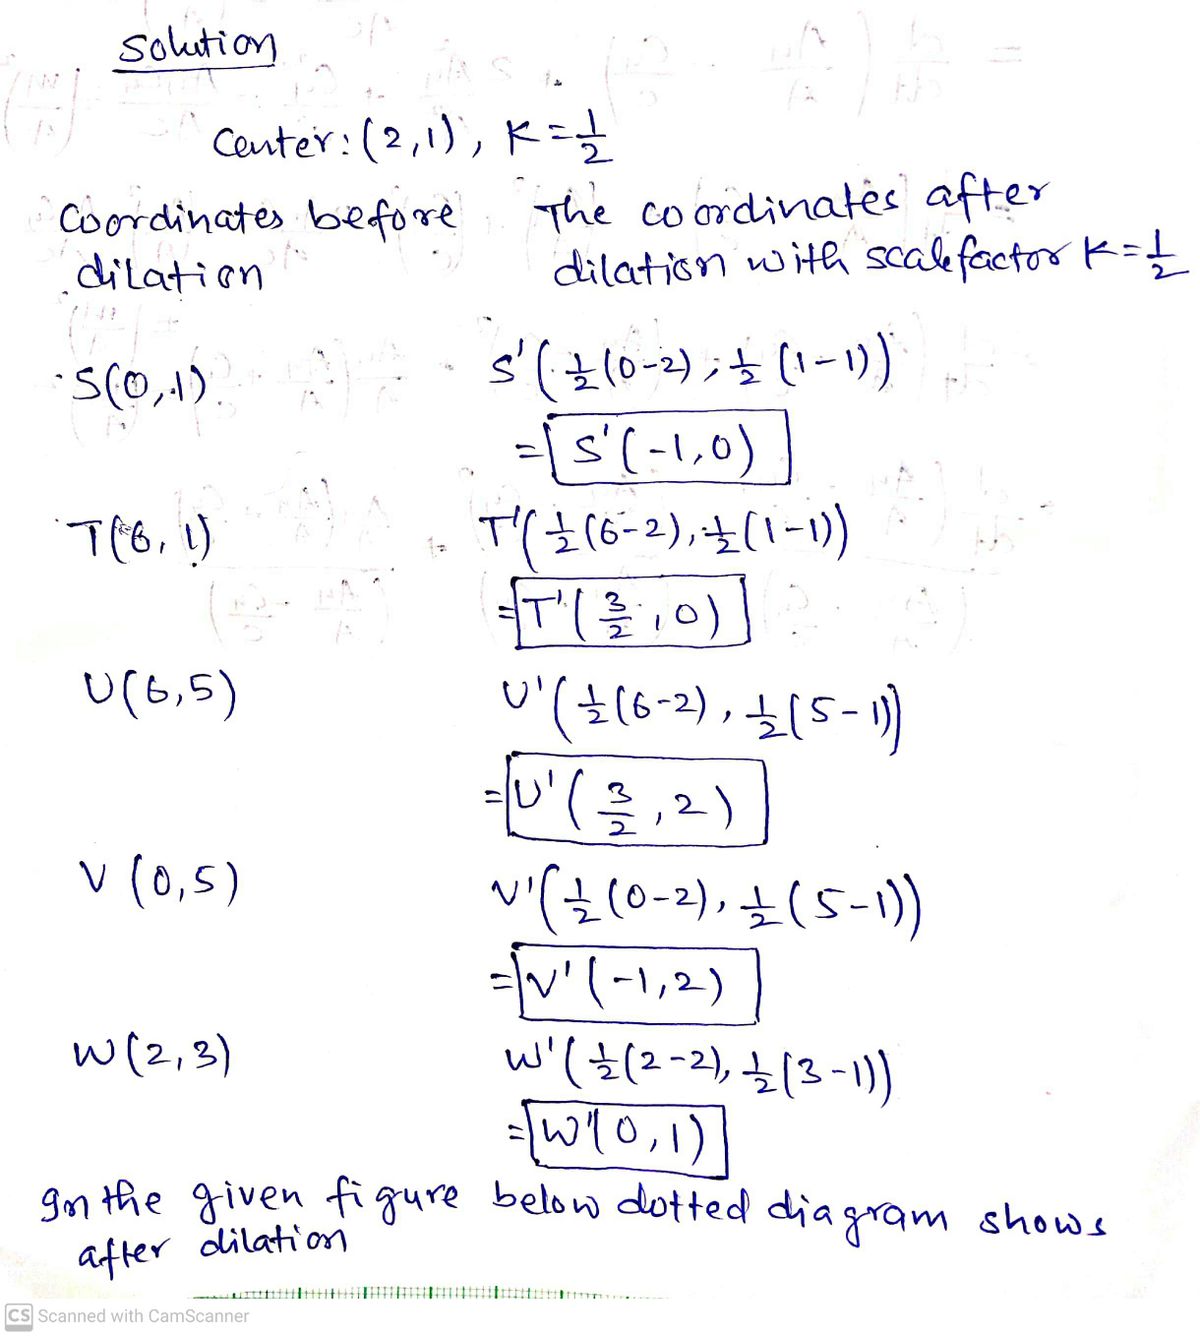 Solution
Center: (2,1), K = 1/2
Coordinates before dilation
The coordinates after dilation with scale factor K = 1/2
S(0,1)
S'(1/2(0-2), 1/2(1-1))
= S'(-1,0)
T(6,1)
T'(1/2(6-2), 1/2(1-1))
= T'(3/2, 0)
U(6,5)
U'(1/2(6-2), 1/2(5-1))
= U'(3/2, 2)
V(0,5)
V'(1/2(0-2), 1/2(5-1))
= V'(-1,2)
W(2,3)
W'(1/2(2-2), 1/2(3-1))
= W'(0,1)
In the given figure below dotted diagram shows
after dilation
CS Scanned with CamScanner